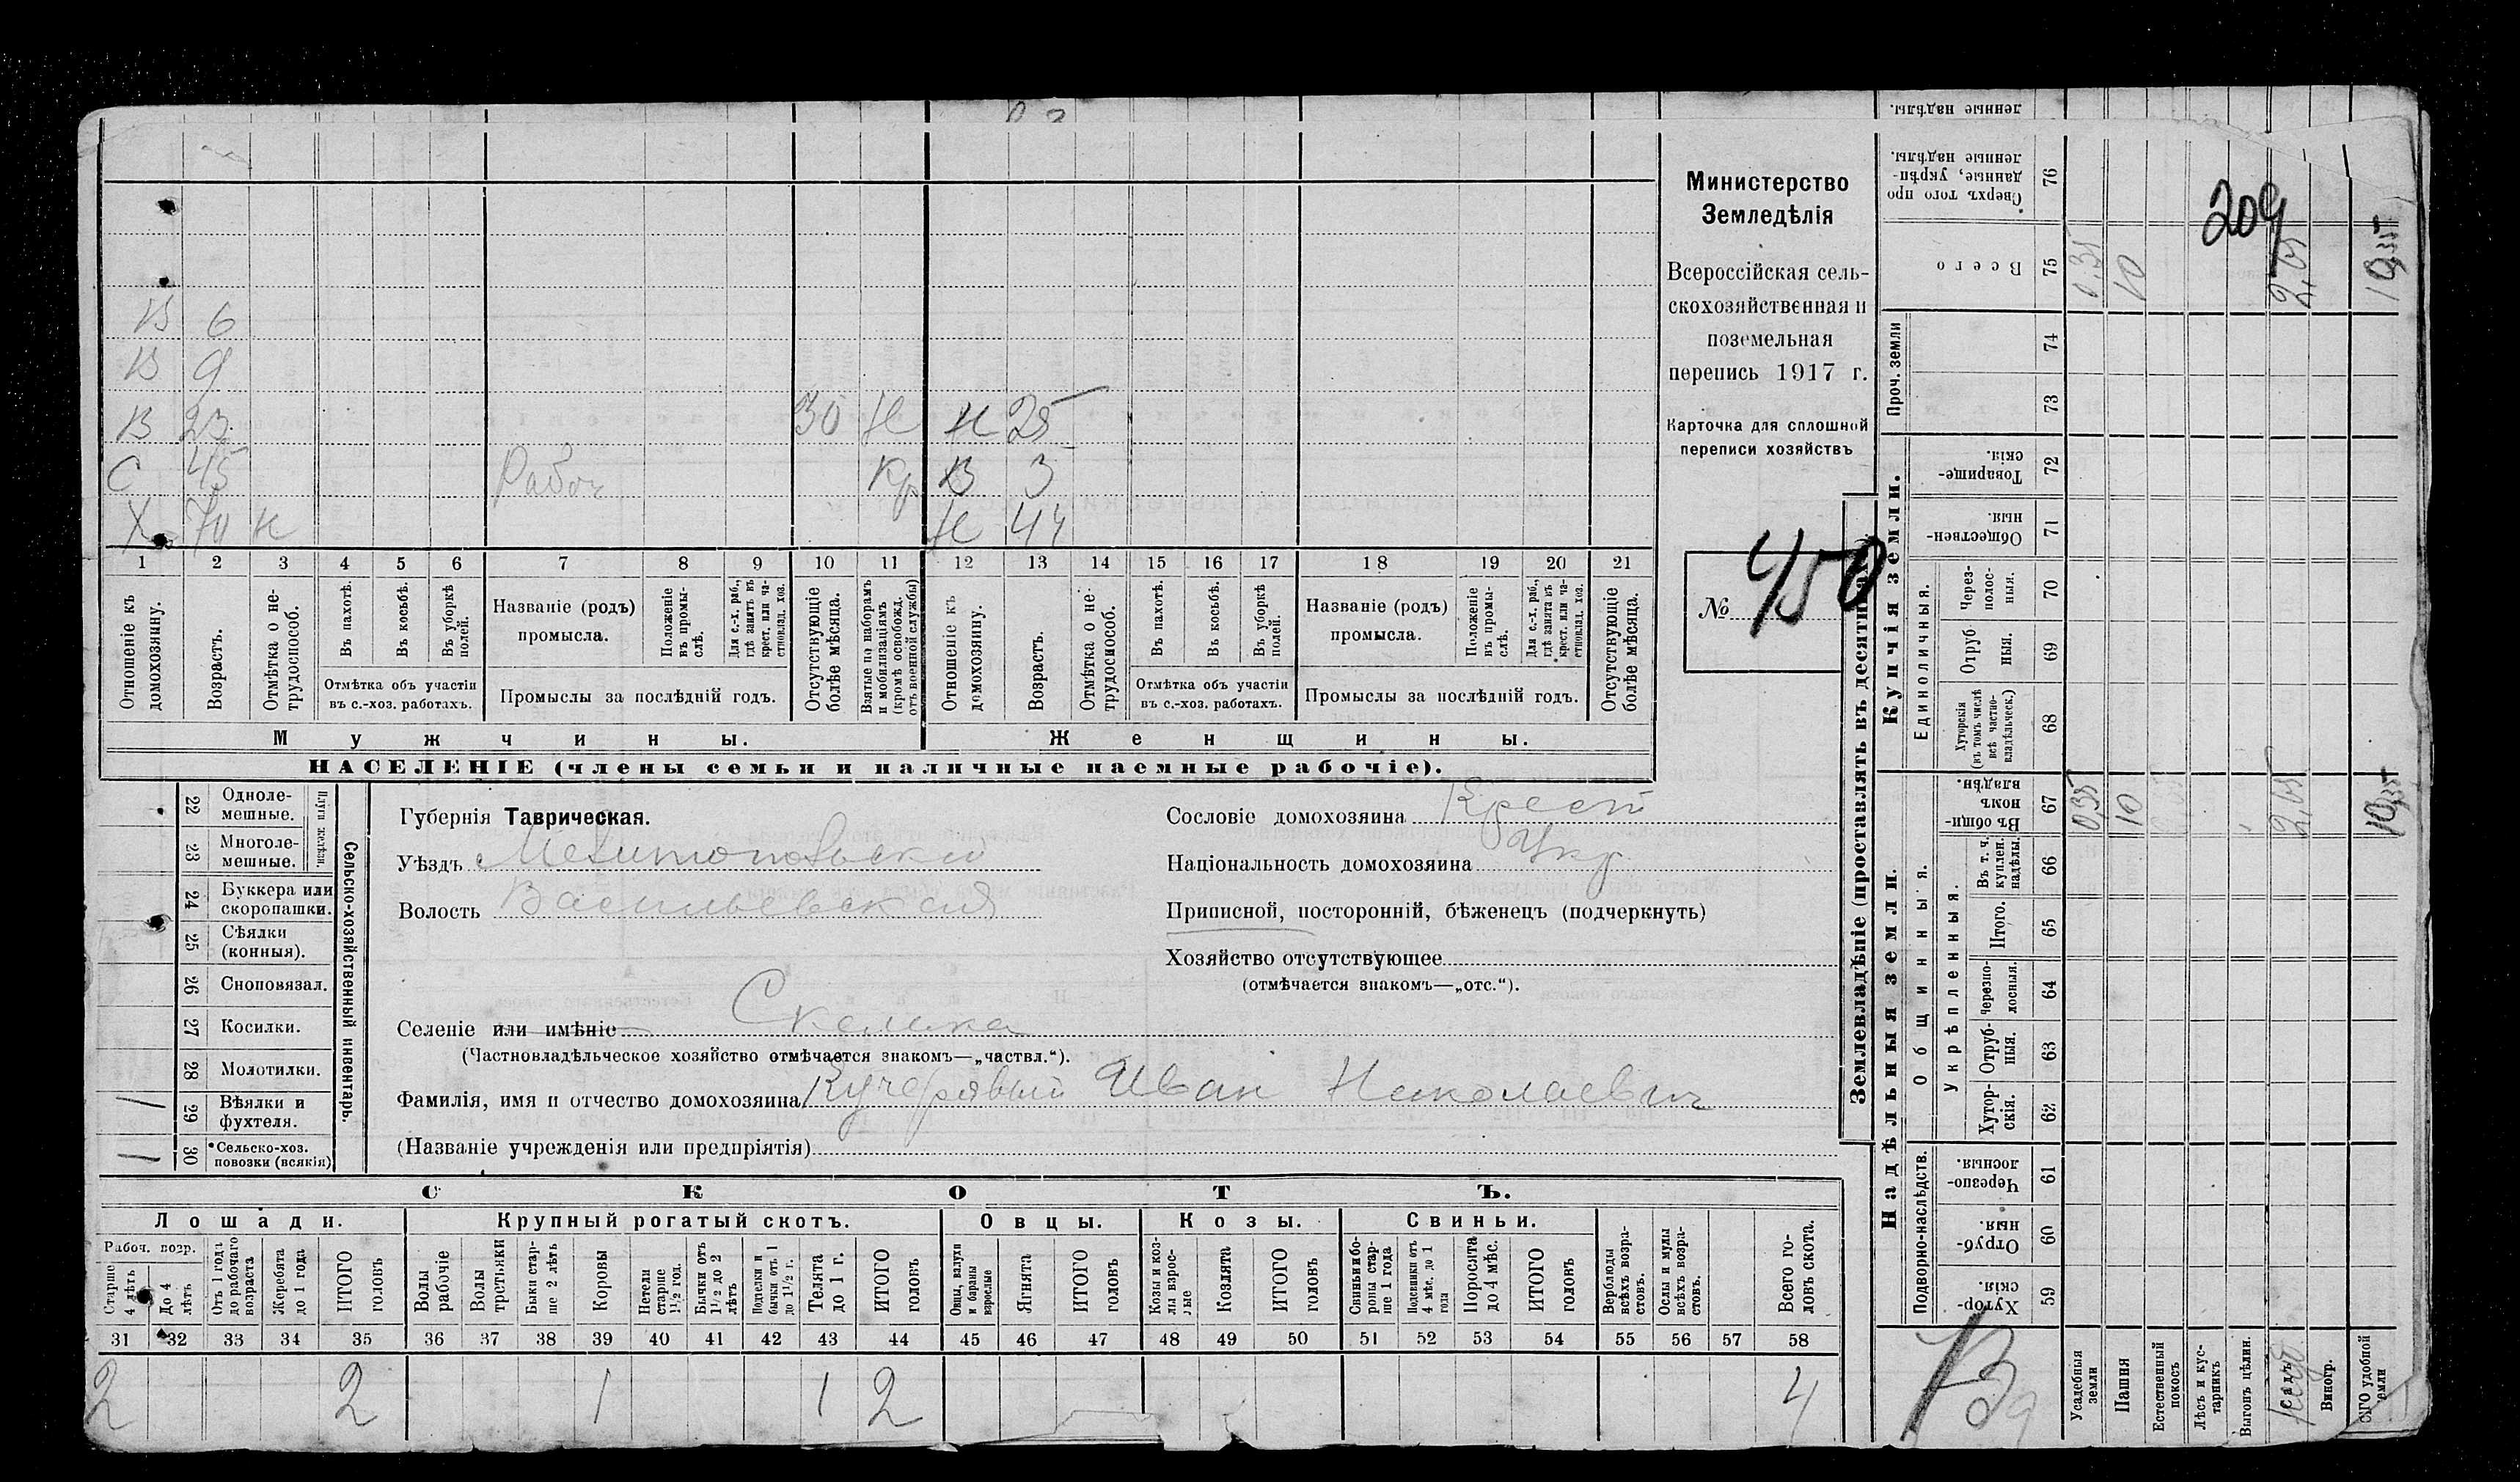 Министерство
Земледѣлія
Всероссійская сель-
скохозяйственная и
поземельная
перепись 1917 г.
Карточка для сплошной
переписи хозяйствъ
№ 450
209
В 6
В 9
В 23 30 Н Н 25
С 45 Рабоч Кр В 3
Х 70 н Н 44
1 2 3 4 5 6 7 8 9 10 11 12 13 14 15 16 17 18 19 20 21
Отношеніе къ домохозяину.
Возрастъ.
Отмѣтка о не-трудоспособ.
Въ пахотѣ.
Въ косьбѣ.
Въ уборкѣ полей.
Отмѣтка объ участіи
въ с.-хоз. работахъ.
Названіе (родъ)
промысла.
Положеніе въ промы-слѣ.
Для с.-х. раб., гдѣ занятъ въ крест. или ча-стновлад. хоз.
Промыслы за послѣдній годъ.
Отсутствующіе болѣе мѣсяца.
Взятые по наборамъ и мобилизаціямъ (кромѣ освобожд. отъ военной службы)
Отношеніе къ домохозяину.
Возрастъ.
Отмѣтка о не-трудоспособ.
Въ пахотѣ.
Въ косьбѣ.
Въ уборкѣ полей.
Отмѣтка объ участіи
въ с.-хоз. работахъ.
Названіе (родъ)
промысла.
Положеніе въ промы-слѣ.
Для с.-х. раб., гдѣ занята въ крест. или ча-стновлад. хоз.
Промыслы за послѣдній годъ.
Отсутствующіе болѣе мѣсяца.
Мужчины. Женщины.
НАСЕЛЕНІЕ (члены семьи и наличные наемные рабочіе).
22 Одноле-мешные.
23 Многоле-мешные.
Плуги желѣзн.
24 Буккера или скоропашки.
25 Сѣялки (конныя).
26 Сноповязал.
27 Косилки.
28 Молотилки.
29 Вѣялки и фухтеля. 1
30 Сельско-хоз. повозки (всякія) 1
Сельско-хозяйственный инвентарь.
Губернія Таврическая.
Уѣздъ Мелитопольский
Волость Васильевская
Селеніе или имѣніе Скелька
(Частновладѣльческое хозяйство отмѣчается знакомъ—„частвл.“).
Фамилія, имя и отчество домохозяина Кучерявый Иван Николаевич
(Названіе учрежденія или предпріятія)
Сословіе домохозяина Крест
Національность домохозяина Укр
Приписной, посторонній, бѣженецъ (подчеркнуть)
Хозяйство отсутствующее
(отмѣчается знакомъ—„отс.“).
СКОТЪ.
Лошади. Крупный рогатый скотъ. Овцы. Козы. Свиньи.
Рабоч. возр.
Старше 4 лѣтъ
До 4 лѣтъ
Отъ 1 года до рабочаго возраста
Жеребята до 1 года
ИТОГО головъ
Волы рабочіе
Волы третьяки
Быки стар-ше 2 лѣтъ
Коровы
Нетели старше 1½ год.
Бычки отъ 1½ до 2 лѣтъ
Подтелки и бычки отъ 1 до 1½ г.
Телята до 1 г.
ИТОГО головъ
Овцы, валухи и бараны взрослые
Ягнята
ИТОГО головъ
Козы и коз-лы взрос-лые
Козлята
ИТОГО головъ
Свиньи и бо-ровы стар-ше 1 года
Подсвинки отъ 4 мѣс. до 1 года
Поросята до 4 мѣс.
ИТОГО головъ
Верблюды всѣхъ возра-стовъ.
Ослы и мулы всѣхъ возра-стовъ.
Всего го-ловъ скота.
31 32 33 34 35 36 37 38 39 40 41 42 43 44 45 46 47 48 49 50 51 52 53 54 55 56 57 58
2 2 1 1 2 4
Землевладѣніе (проставлять въ десятинахъ).
Надѣльныя земли.
Купчія земли.
Проч. земли
Подворно-наслѣдств.
Общинныя.
Укрѣпленныя.
Единоличныя.
59 Хутор-скія.
60 Отруб-ныя.
61 Черезпо-лосныя.
62 Хутор-скія.
63 Отруб-ныя.
64 Черезпо-лосныя.
65 Итого.
66 Въ т. ч. куплен. надѣлы.
67 Въ общи-номъ владѣн.
68 Хуторскія (въ томъ числѣ всѣ частно-владѣльческ.)
69 Отруб-ныя.
70 Через-полос-ныя.
71 Обществен-ныя.
72 Товарище-скія.
73
74
75 Всего
76 Сверхъ того про-данные, укрѣп-ленные надѣлы.
ленные надѣлы.
Усадебныя земли 0,35 0,35
Пашня 10 10
Естественный покосъ
Лѣсъ и кус-тарникъ
Выгонъ цѣлин.
2,05 2,05
Виногр.
удобной земли 10,35 10,35